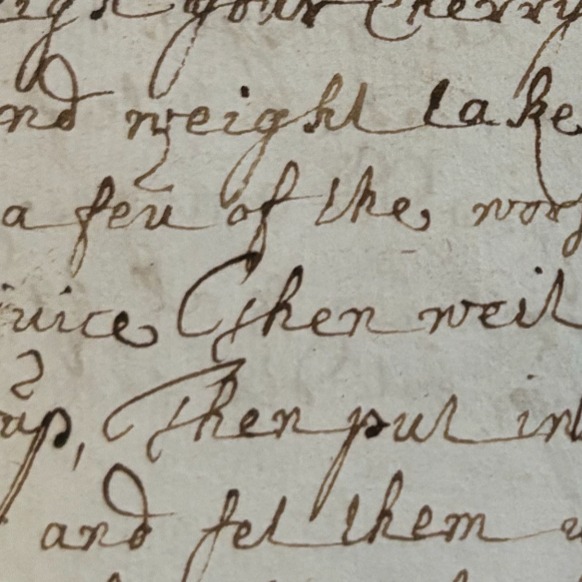 your Cherry
and weight take
a few of the wors
juice Then weit
up, Then put int
and set them